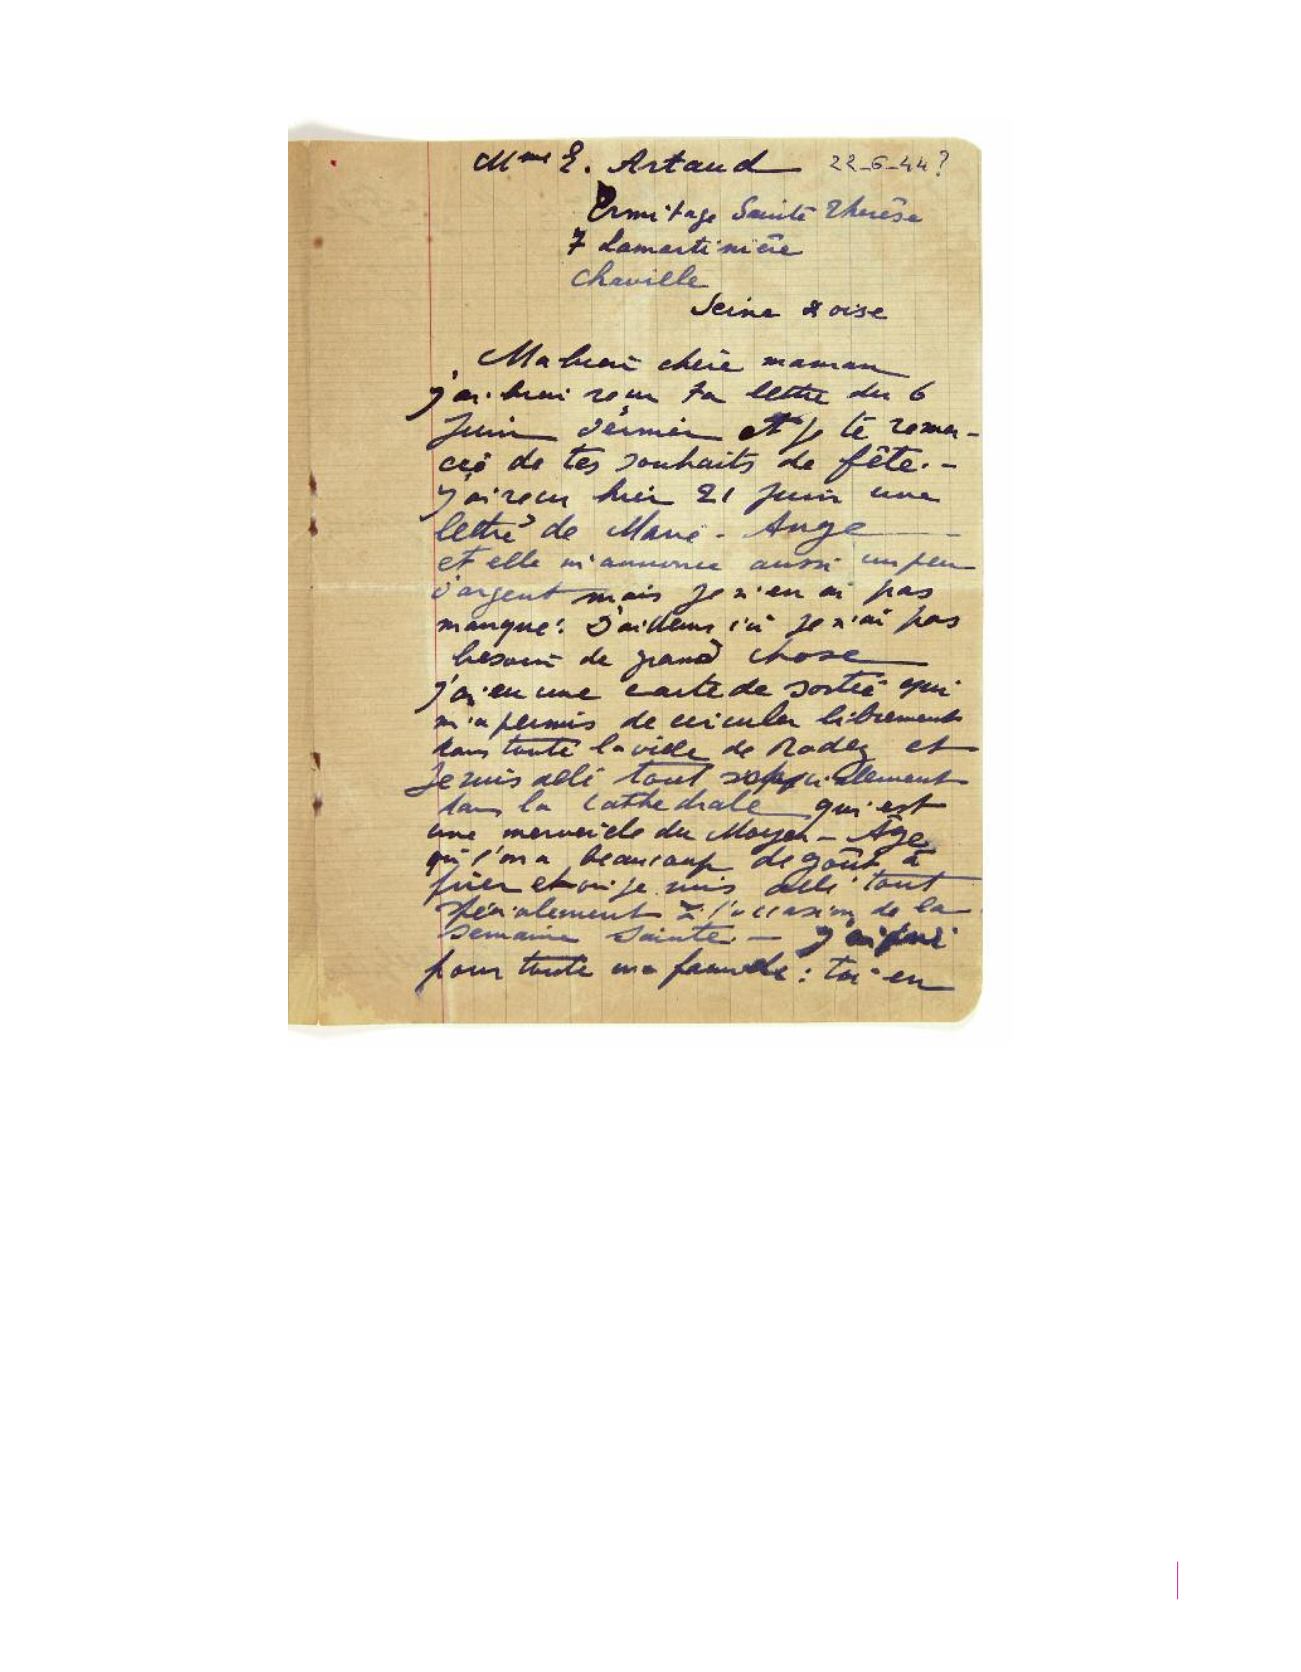 Mme E. Artaud 22-6-44?
Ermitage Sainte Therèse
7 Lamartinière
Chaville
Seine & oise
Ma bien chère maman
j'ai bien reçu ta lettre du 6
Juin dernier et je te remer-
cie de tes souhaits de fête. -
j'ai reçu hier 21 Juin une
lettre de Marie-Ange
et elle m'annonce aussi un peu
d'argent mais je n'en ai pas
manqué. D'ailleurs ici je n'ai pas
besoin de grand chose
j'ai eu une carte de sortie qui
m'a permis de circuler librement
dans toute la ville de Rodez et
Je suis allé tout spécialement
dans la Cathédrale qui est
une merveille du Moyen-Âge
où l'on a beaucoup de goût à
prier et où je suis allé tout
spécialement à l'occasion de la
semaine sainte. - J'ai prié
pour toute ma famille : toi en